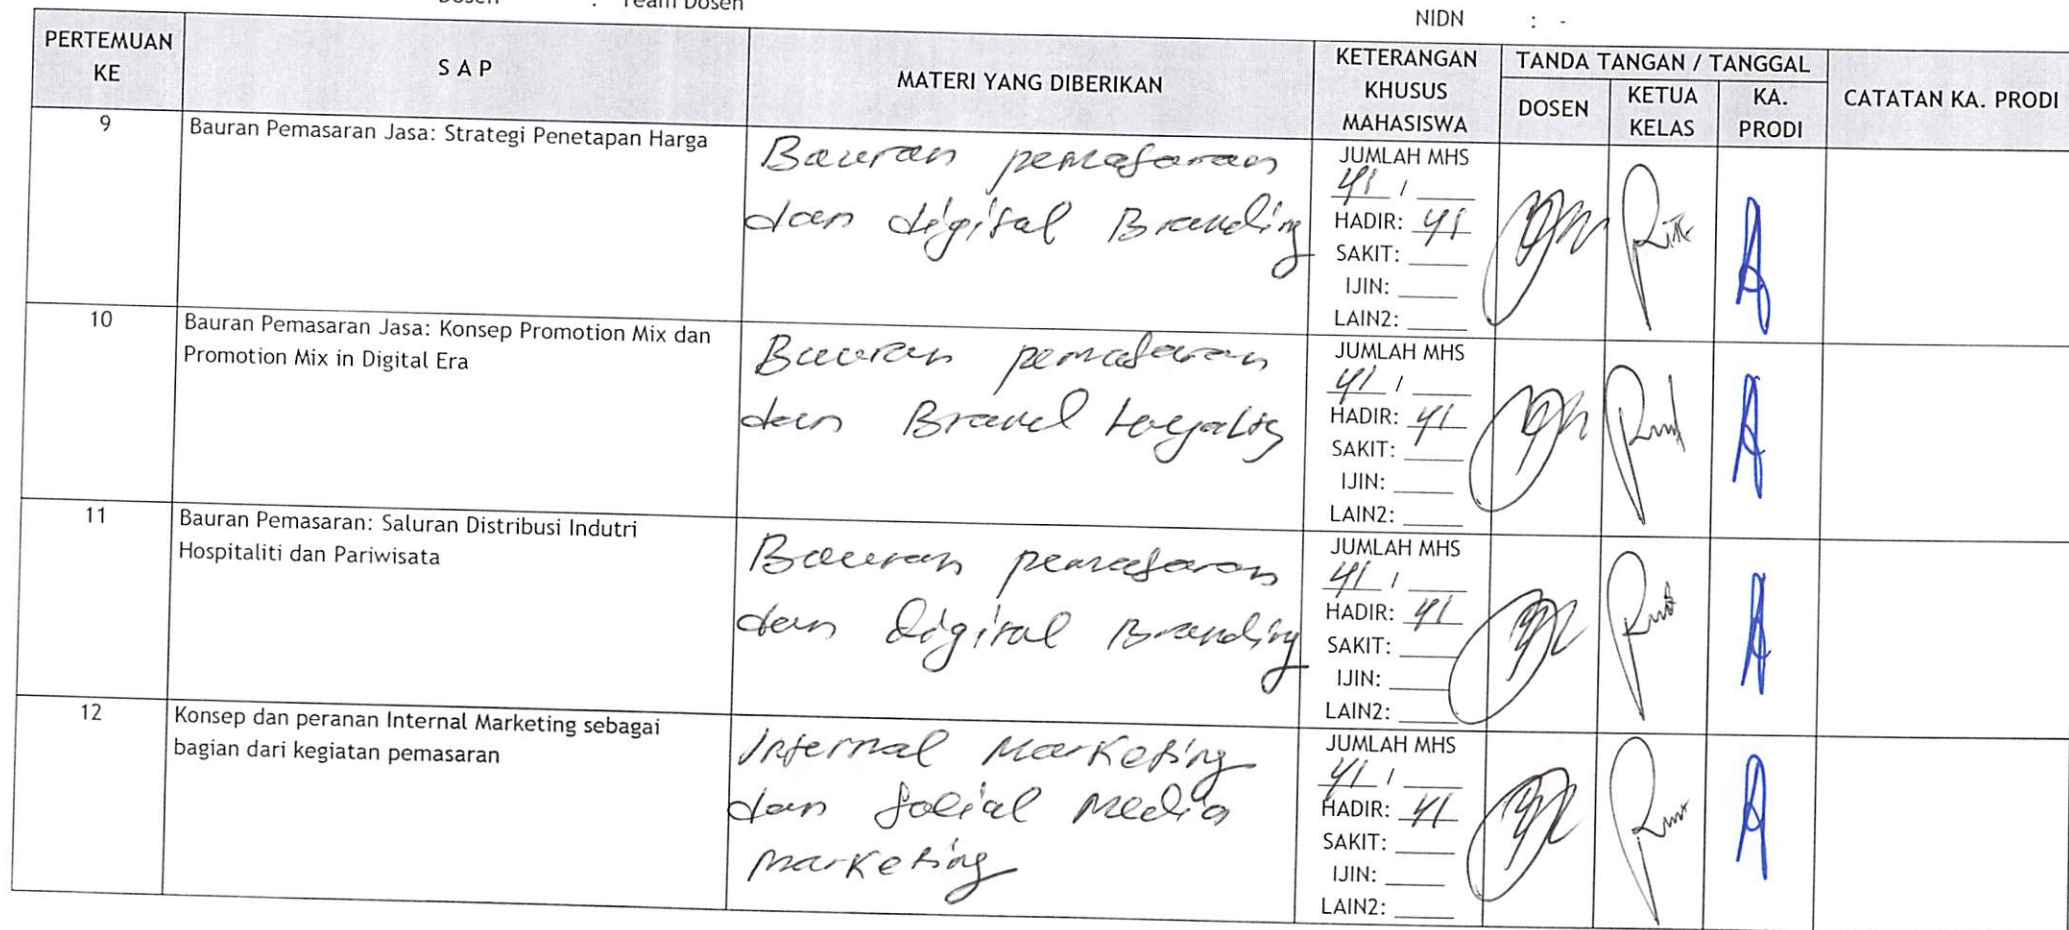 Dosen : Team Dosen
NIDN : -
PERTEMUAN KE
S A P
MATERI YANG DIBERIKAN
KETERANGAN KHUSUS MAHASISWA
TANDA TANGAN / TANGGAL
DOSEN
KETUA KELAS
KA. PRODI
CATATAN KA. PRODI
9
Bauran Pemasaran Jasa: Strategi Penetapan Harga
Bauran pemasaran
dan digital Branding
JUMLAH MHS
41 / ____
HADIR: 41
SAKIT: ____
IJIN: ____
LAIN2: ____
10
Bauran Pemasaran Jasa: Konsep Promotion Mix dan
Promotion Mix in Digital Era
Bauran pemasaran
dan Brand
JUMLAH MHS
41 / ____
HADIR: 41
SAKIT: ____
IJIN: ____
LAIN2: ____
11
Bauran Pemasaran: Saluran Distribusi Indutri
Hospitaliti dan Pariwisata
Bauran pemasaran
dan Digital Branding
JUMLAH MHS
41 / ____
HADIR: 41
SAKIT: ____
IJIN: ____
LAIN2: ____
12
Konsep dan peranan Internal Marketing sebagai
bagian dari kegiatan pemasaran
Internal Marketing
dan Social Media
Marketing
JUMLAH MHS
41 / ____
HADIR: 41
SAKIT: ____
IJIN: ____
LAIN2: ____